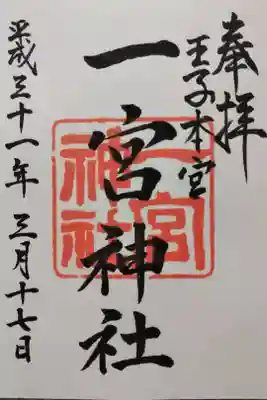 奉拝
王子本宮
一宮神社
平成三十一年 三月十七日
一宮
神社